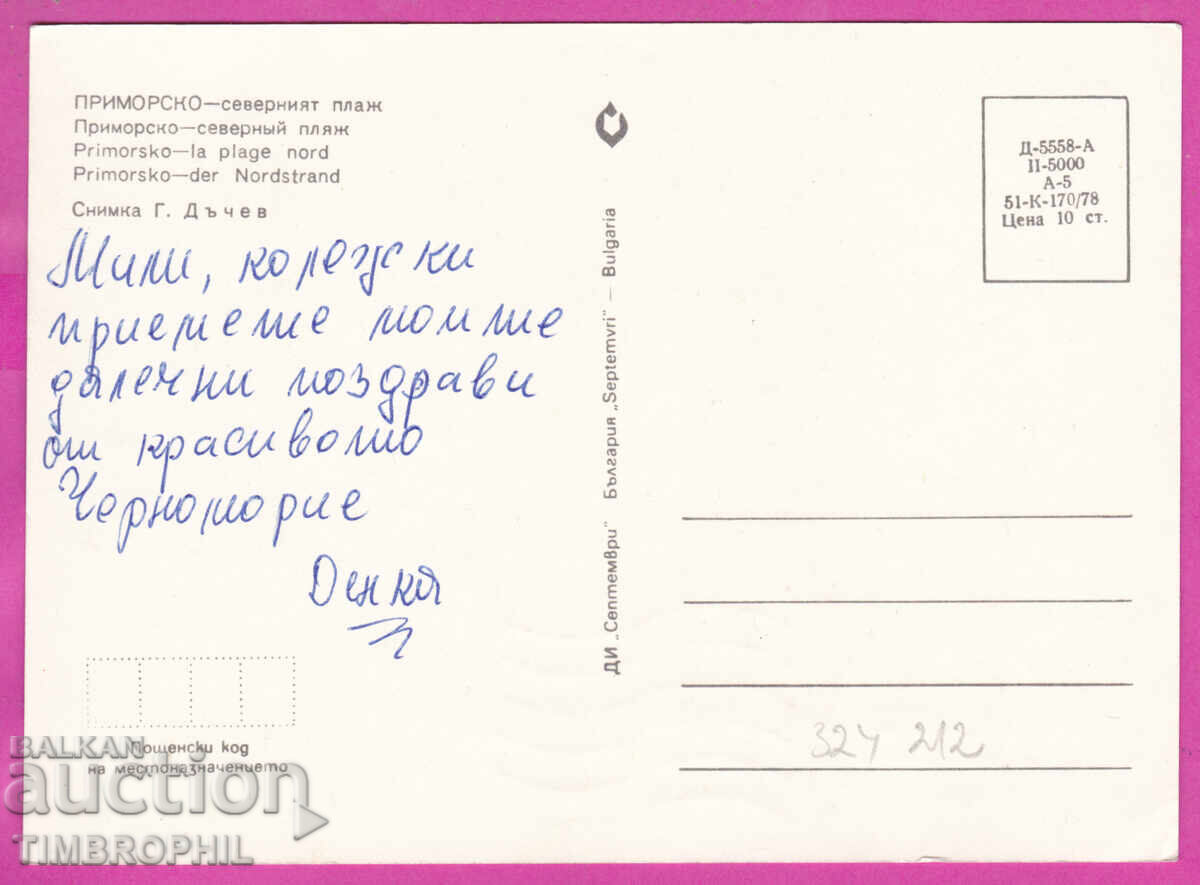 ПРИМОРСКО—северният плаж
Приморско—северный пляж
Primorsko—la plage nord
Primorsko—der Nordstrand
Снимка Г. Дъчев
Мили, колежски
приемете моите
далечни поздрави
от красивото
Черноморие
Денка
Пощенски код
на местоназначението
ДИ „Септември" България „Septemvri" — Bulgaria
Д-5558-А
II-5000
А-5
51-К-170/78
Цена 10 ст.
324 212
BALKAN
auction
TIMBROPHIL